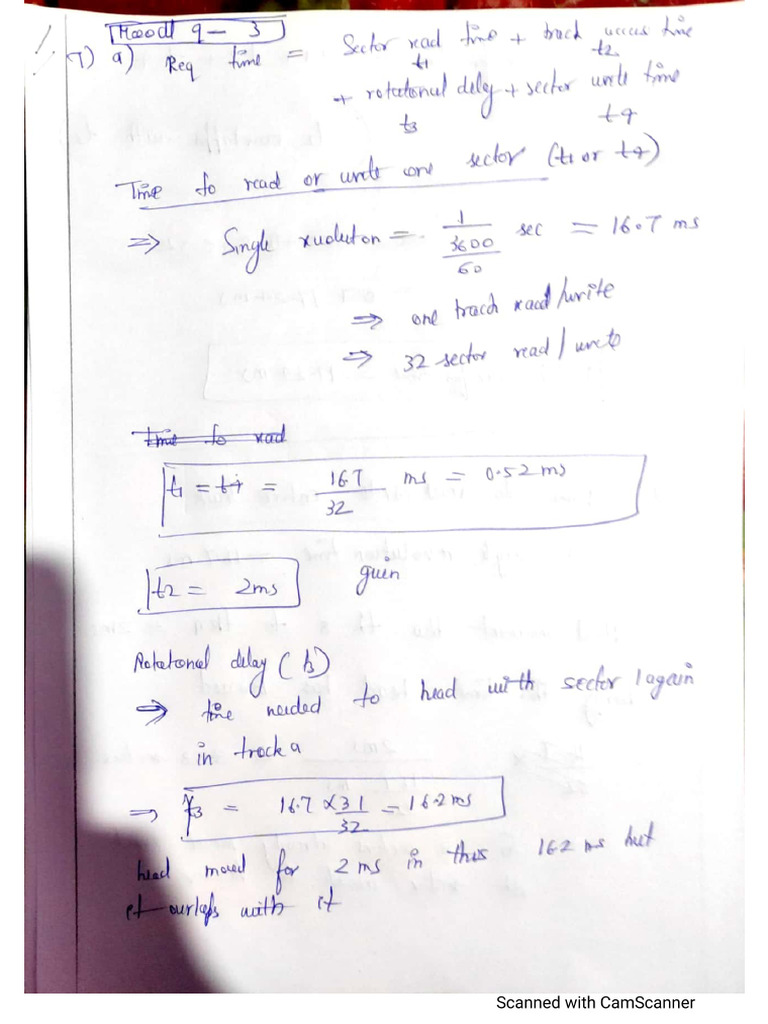 9 - 3
7) a) Req time = Sector read time + track access time
t1 t2
+ rotational dely + sector write time
t3 t4
Time to read or write one sector (t1 or t4)
⇒ Single = 1 / (3600 / 60) sec = 16.7 ms
⇒ one track read/write
⇒ 32 sector read / write
Time to read
t1 = t4 = 16.7 / 32 ms = 0.52 ms
t2 = 2ms given
Rotational delay (t3)
⇒ time needed to head with sector 1 again
in track a
⇒ t3 = 16.7 × 31 / 32 = 16.2 ms
head moved for 2 ms in this 16.2 ms but
it overlaps with it
Scanned with CamScanner